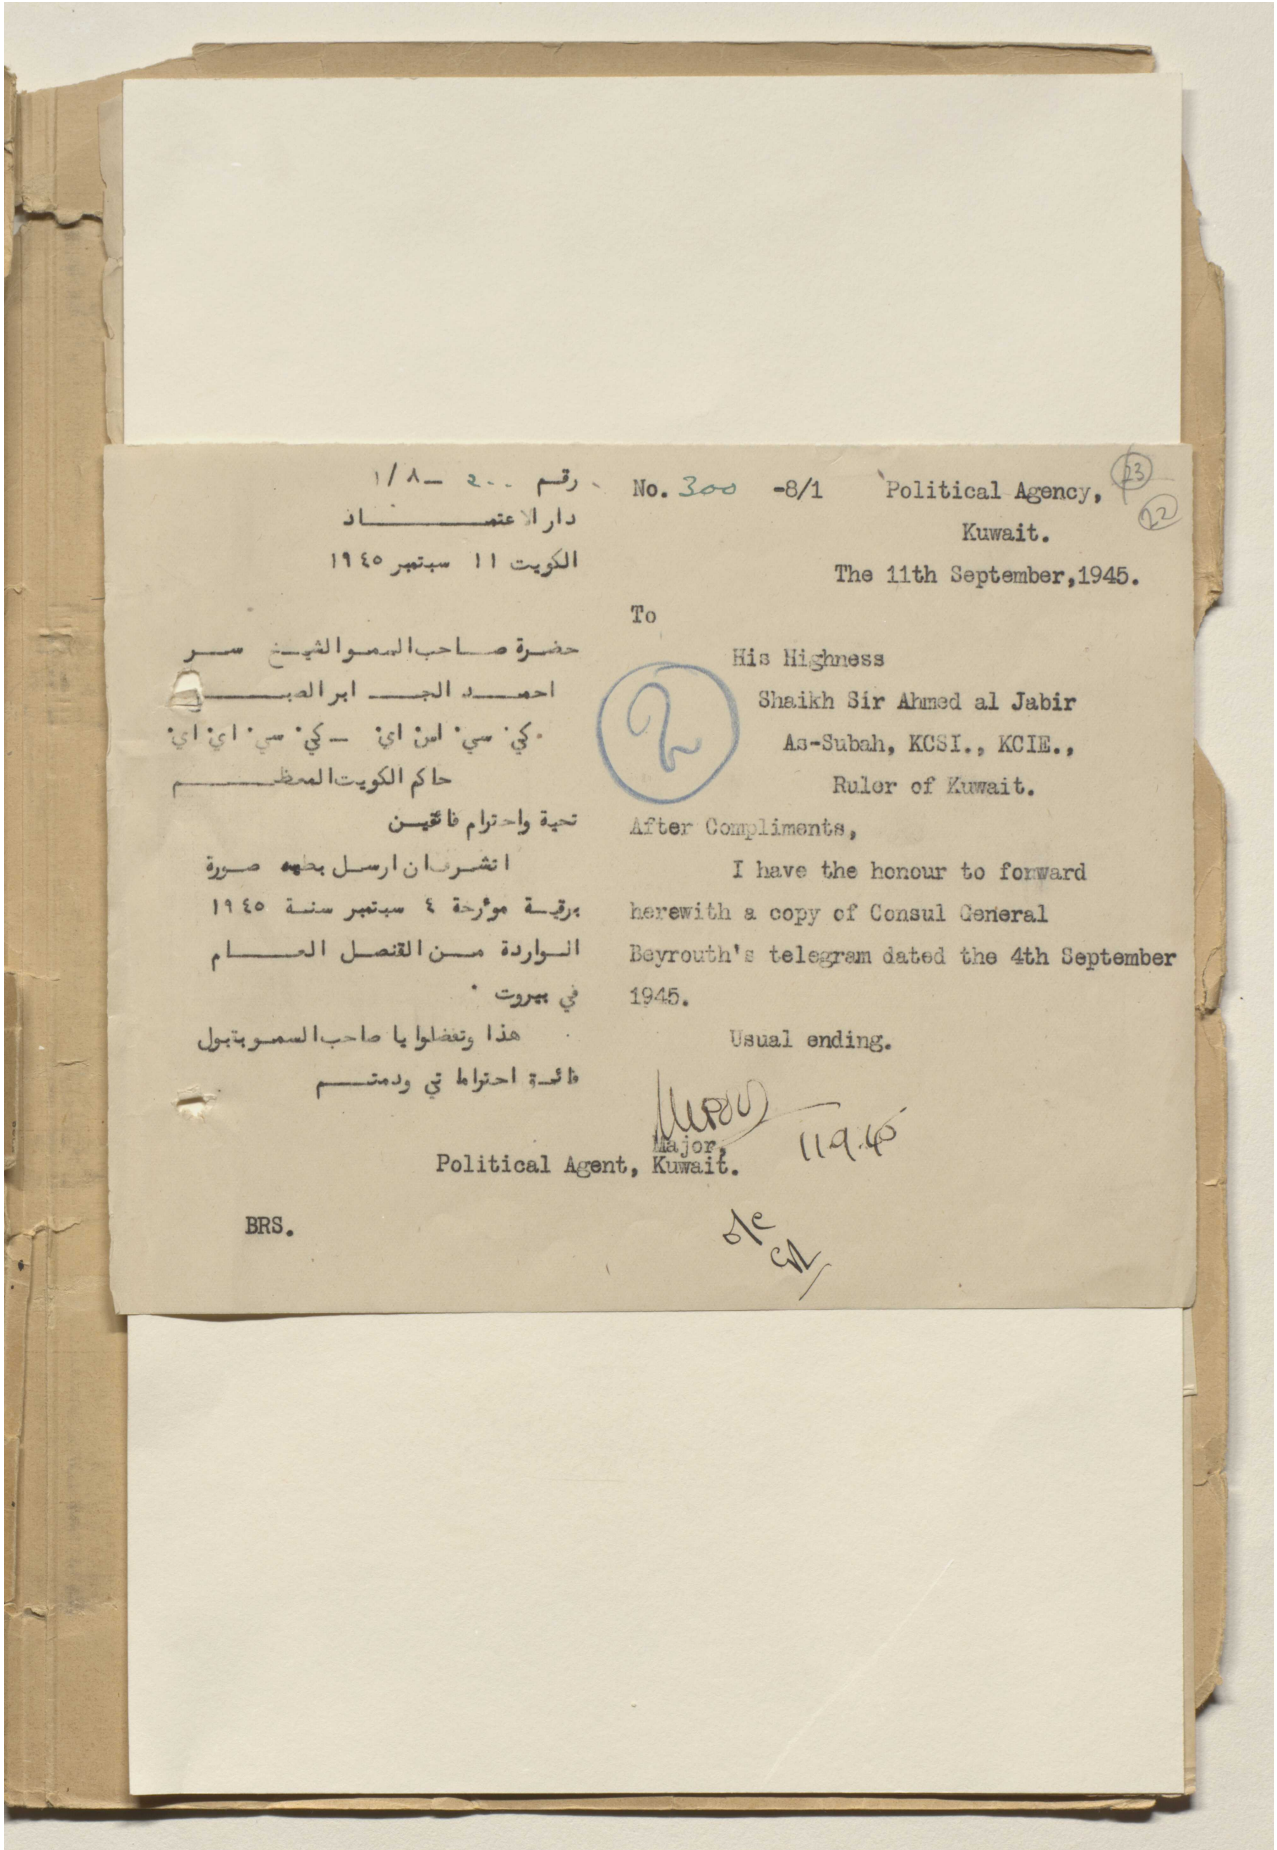 23
22
No. 300 -8/1 Political Agency,
Kuwait.
The 11th September,1945.
To
His Highness
Shaikh Sir Ahmed al Jabir
As-Subah, KCSI., KCIE.,
Ruler of Kuwait.
After Compliments,
I have the honour to forward
herewith a copy of Consul General
Beyrouth's telegram dated the 4th September
1945.
Usual ending.
رقم ٣٠٠ – ١/٨
دار الاعتمـــــاد
الكويت ١١ سبتمبر ١٩٤٥
حضرة صاحب السمو الشيخ سر
احمد الجابر الصبـــ
كي٠ سي٠ اس٠ اي٠ – كي٠ سي٠ اي٠ اي٠
حاكم الكويت المعظـــم
تحية واحترام فائقين
اتشرف ان ارسل بطيه صورة
برقية مؤرخة ٤ سبتمبر سنة ١٩٤٥
الواردة من القنصل العـــام
في بيروت ٠
هذا وتفضلوا يا صاحب السمو بقبول
فائقة احتراماتي ودمتـــم
2
Major,
11.9.45
Political Agent, Kuwait.
BRS.
o/c